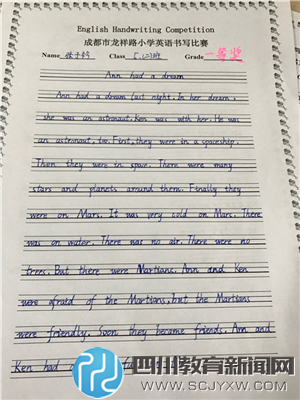 English Handwriting Competition
成都市龙祥路小学英语书写比赛
Name Class 5.(2)班 Grade 一等奖
Ann had a dream
Ann had a dream last night. In her dream,
she was an astronaut. Ken was with her. He was
an astronaut, too. First, they were in a spaceship.
Then they were in space. There were many
stars and planets around them. Finally they
were on Mars. It was very cold on Mars. There
was on water. There was no air. There were no
trees. But there were Martians. Ann and Ken
were afraid of the Martians, but the Martians
were friendly. Soon they became friends. Ann and
Ken had a
四川教育新闻网
WWW.SCJYXW.COM